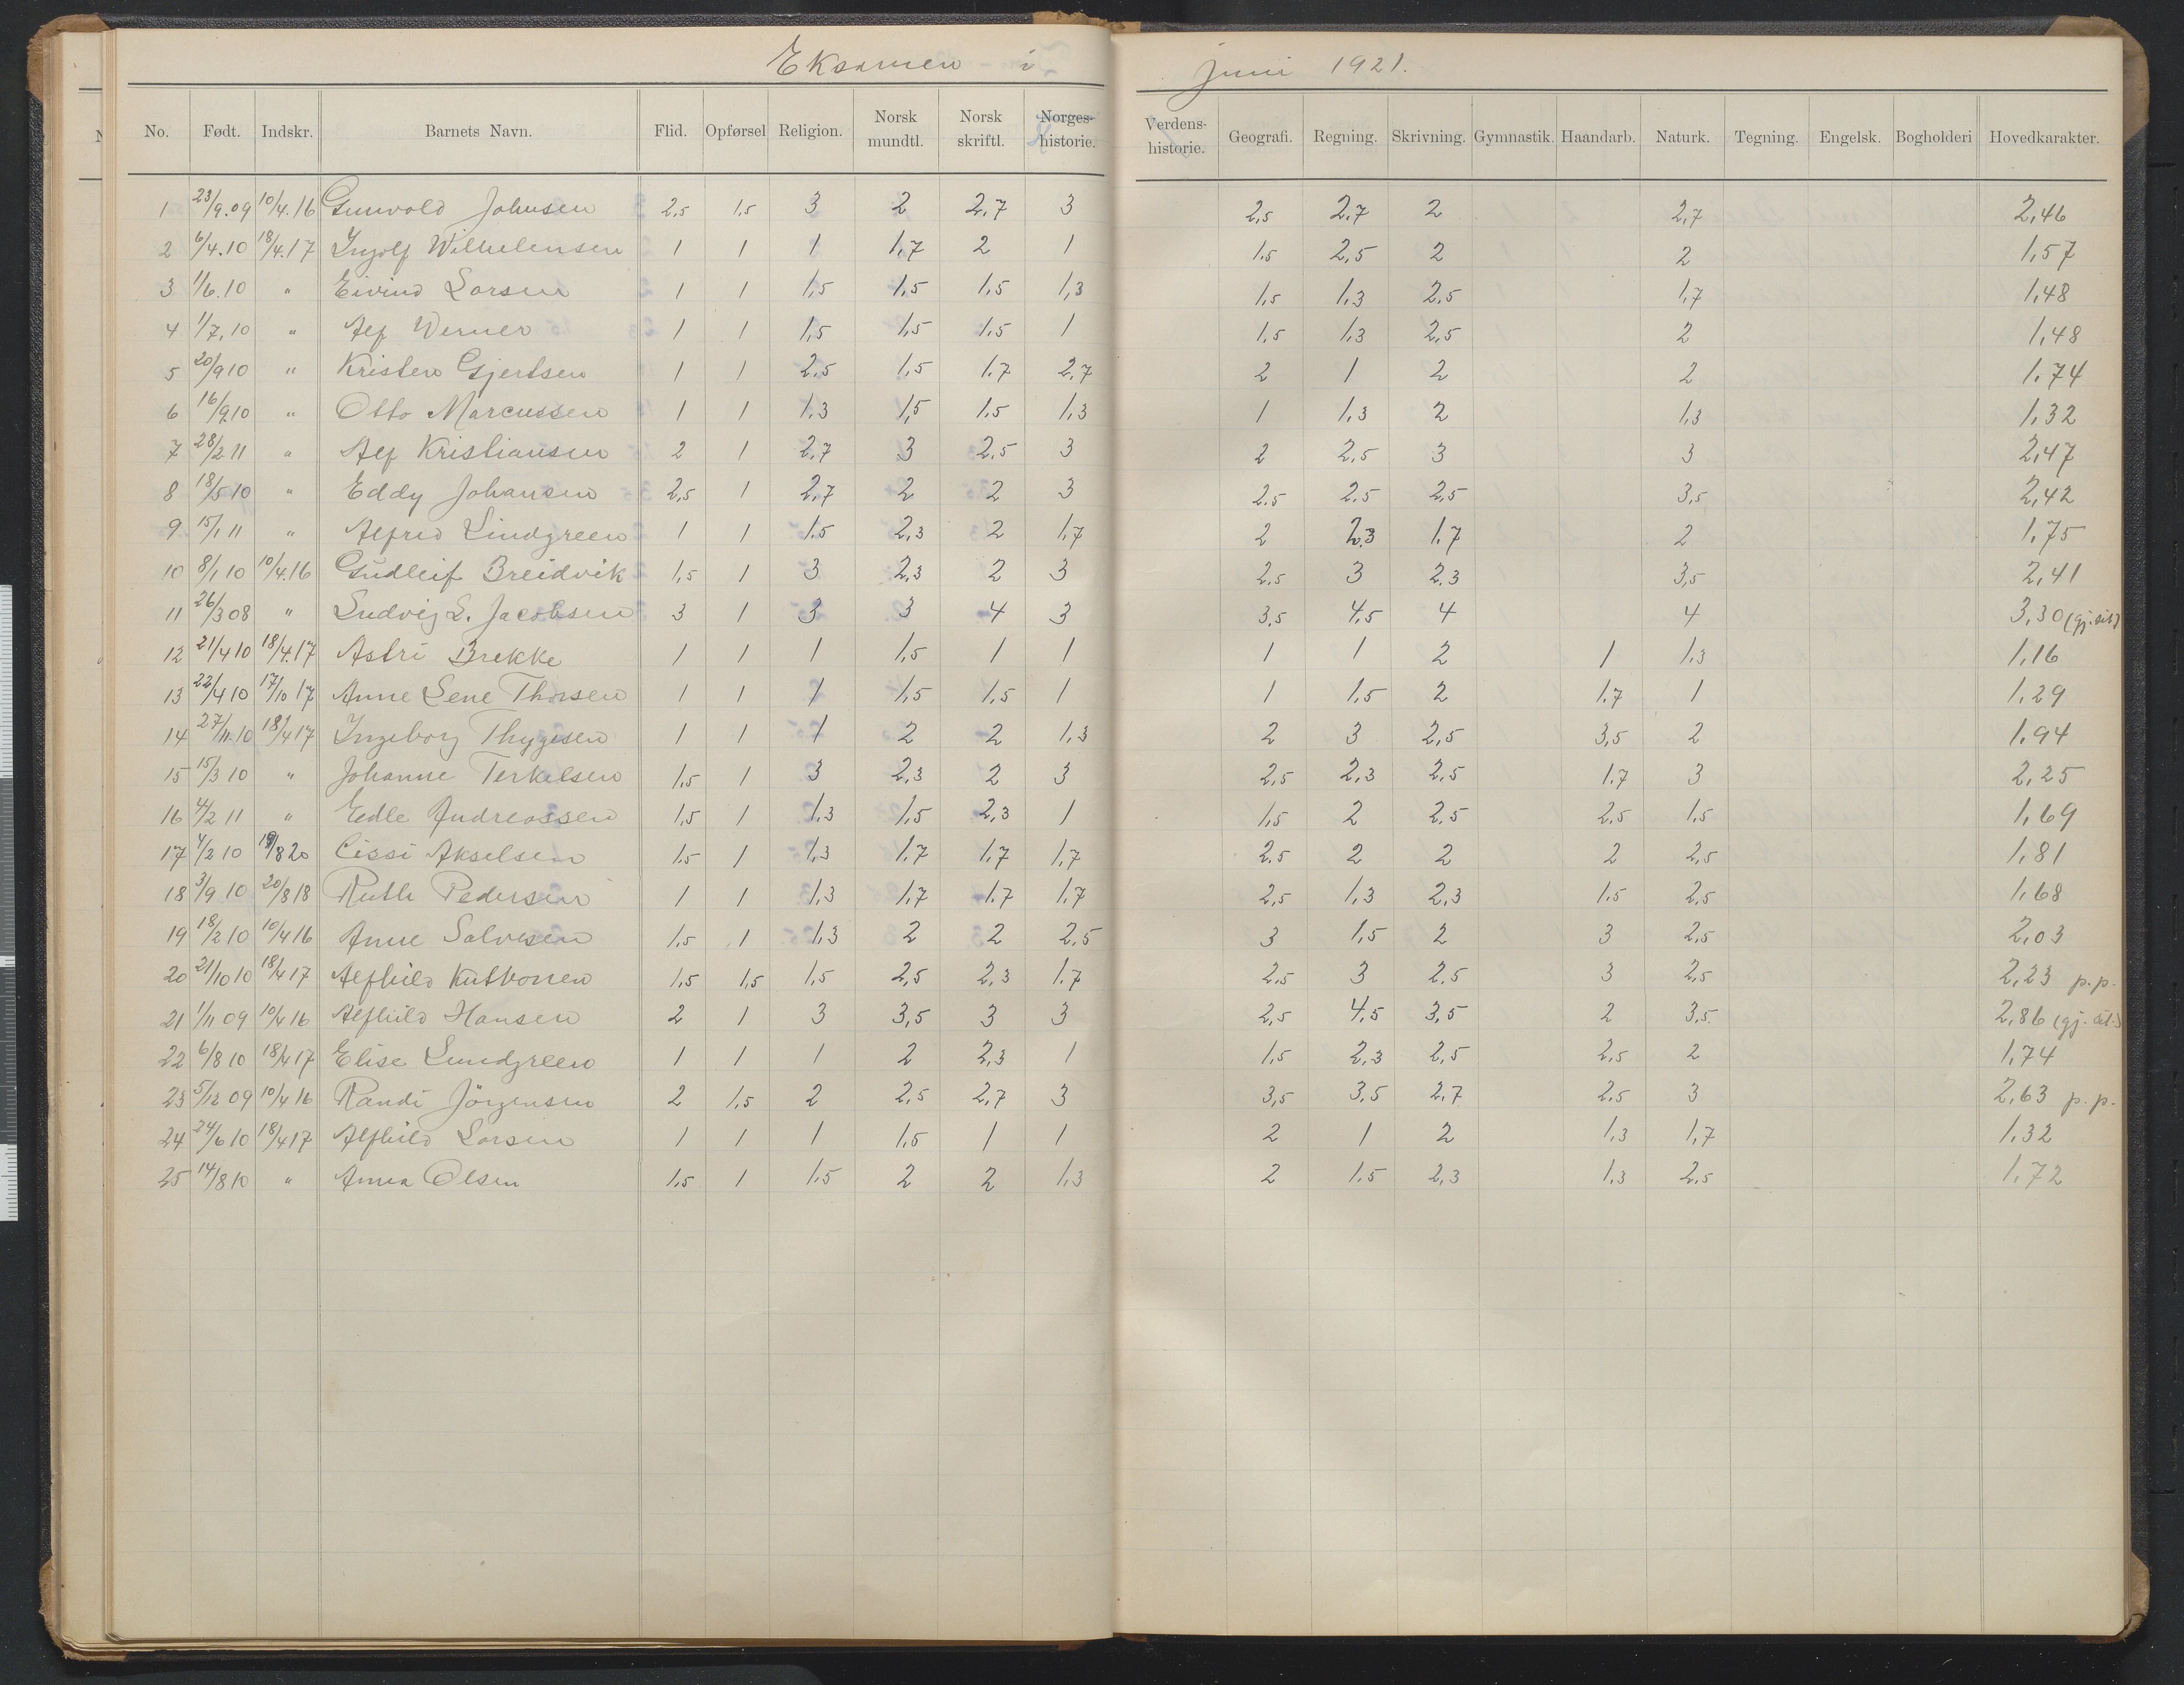 Eksamen i juni 1921.
No. Født. Indskr. Barnets Navn. Flid. Opførsel Religion. Norsk mundtl. Norsk skriftl. Norges-historie. Verdens-historie. Geografi. Regning. Skrivning. Gymnastik. Haandarb. Naturk. Tegning. Engelsk. Bogholderi Hovedkarakter.
1 23/9.09 10/4.16 Gunvald Johnsen 2,5 1,5 3 2 2,7 3 2,5 2,7 2 2,7 2,46
2 6/4.10 18/4.17 Ingolf Wilhelmsen 1 1 1 1,7 2 1 1,5 2,5 2 2 1,57
3 1/6.10 " Eivind Larsen 1 1 1,5 1,5 1,5 1,3 1,5 1,3 2,5 1,7 1,48
4 1/7.10 " Alf Werner 1 1 1,5 1,5 1,5 1 1,5 1,3 2,5 2 1,48
5 20/9 10 " Kristen Gjertsen 1 1 2,5 1,5 1,7 2,7 2 1 2 2 1,74
6 16/9.10 " Otto Marcussen 1 1 1,3 1,5 1,5 1,3 1 1,3 2 1,3 1,32
7 28/2 11 " Alf Kristiansen 2 1 2,7 3 2,5 3 2 2,5 3 3 2,47
8 18/5 10 " Eddy Johansen 2,5 1 2,7 2 2 3 2,5 2,5 2,5 3,5 2,42
9 15/1 11 " Alfred Lindgreen 1 1 1,5 2,3 2 1,7 2 2,3 1,7 2 1,75
10 8/1 10 10/4.16 Gudleif Breidvik 1,5 1 3 2,3 2 3 2,5 3 2,3 3,5 2,41
11 26/3 08 " Ludvig L. Jacobsen 3 1 3 3 4 3 3,5 4,5 4 4 3,30
12 21/4 10 18/4.17 Astri Brekke 1 1 1 1,5 1 1 1 1 2 1 1,3 1,16
13 22/4 10 17/10 17 Anne Lene Thorsen 1 1 1 1,5 1,5 1 1 1,5 2 1,7 1 1,29
14 27/11.10 18/4 17 Ingeborg Thygesen 1 1 1 2 2 1,3 2 3 2,5 3,5 2 1,94
15 15/3 10 " Johanne Terkelsen 1,5 1 3 2,3 2 3 2,5 2,3 2,5 1,7 3 2,25
16 4/2 11 " Edle Andreassen 1,5 1 1,3 1,5 2,3 1 1,5 2 2,5 2,5 1,5 1,69
17 4/2 10 19/8 20 Cissi Akselsen 1,5 1 1,3 1,7 1,7 1,7 2,5 2 2 2 2,5 1,81
18 3/9 10 20/8 18 Ruth Pedersen 1 1 1,3 1,7 1,7 1,7 2,5 1,3 2,3 1,5 2,5 1,68
19 18/2 10 10/4 16 Anne Salvesen 1,5 1 1,3 2 2 2,5 3 1,5 2 3 2,5 2,03
20 21/10 10 18/4 17 Alfhild 1,5 1,5 1,5 2,5 2,3 1,7 2,5 3 2,5 3 2,5 2,23 p.p.
21 1/11 09 10/4 16 Alfhild Hansen 2 1 3 3,5 3 3 2,5 4,5 3,5 2 3,5 2,86
22 6/8 10 18/4 17 Elise Lundgreen 1 1 1 2 2,3 1 1,5 2,3 2,5 2,5 2 1,74
23 5/12 09 10/4 16 Randi Jörgensen 2 1,5 2 2,5 2,7 3 3,5 3,5 2,7 2,5 3 2,63 p.p.
24 24/6 10 18/4 17 Alfhild Larsen 1 1 1 1,5 1 1 2 1 2 1,3 1,7 1,32
25 14/8 10 " Anna Olsen 1,5 1 1,5 2 2 1,3 2 1,5 2,3 1,3 2,5 1,72